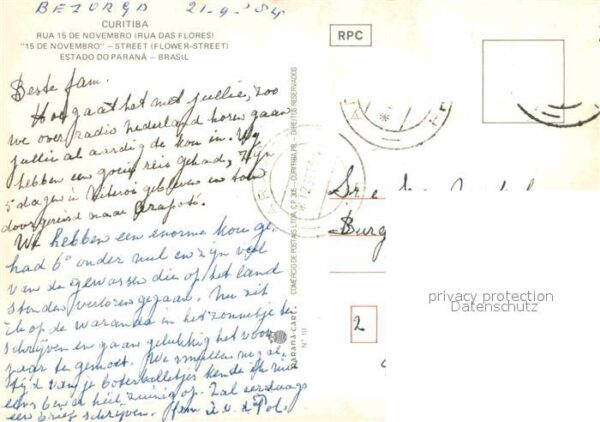 BEZORGD 21-9-'84
CURITIBA
RUA 15 DE NOVEMBRO (RUA DAS FLORES)
"15 DE NOVEMBRO" – STREET (FLOWER-STREET)
ESTADO DO PARANÁ – BRASIL
Beste fam.
Hoe gaat het met jullie, zoo
we over radio nederland horen gaan
jullie al aardig de kou in. Wij
hebben een goeie reis gehad, zijn
5 dagen in Niteroi gebleven en toen
doorgereisd naar Arapoti.
We hebben een enorme kou ge-
had 6° onder nul en zijn veel
van de gewassen die op het land
stonden verloren gegaan. Nu zit
ik op de waranda in het zonnetje te
schrijven en gaan gelukkig het voor
jaar te gemoet. We smullen nog al-
tijd van je boterballetjes
een brief schrijven. Fam v.d. Pol.
COMERCIO DE POSTAIS LTDA. C.P. - CURITIBA PR. - DIREITOS RESERVADOS
PARANÁ CART.
Nº 111
RPC
Sr e
Burg
2
privacy protection
Datenschutz